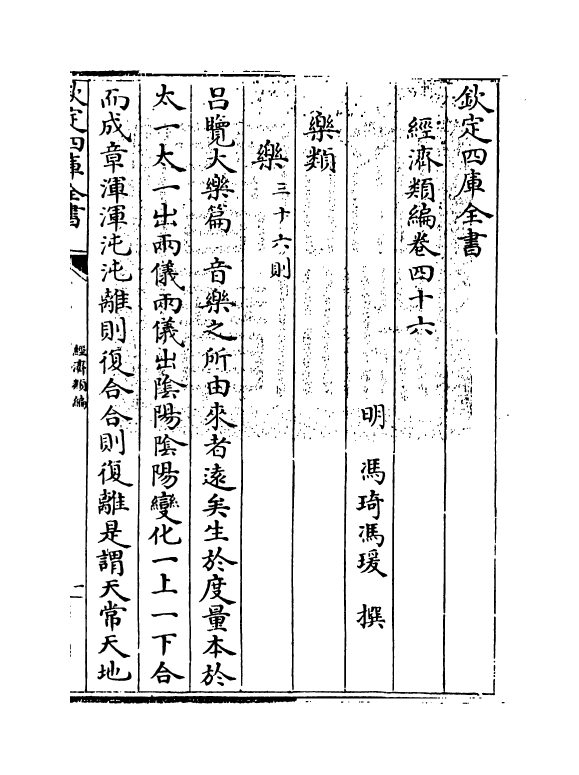 欽定四庫全書
經濟類編卷四十六
明　馮琦馮瑗　撰
樂類
樂三十六則
呂覽大樂篇　音樂之所由來者遠矣生於度量本於
太一太一出兩儀兩儀出陰陽陰陽變化一上一下合
而成章渾渾沌沌離則復合合則復離是謂天常天地
欽定四庫全書
經濟類編